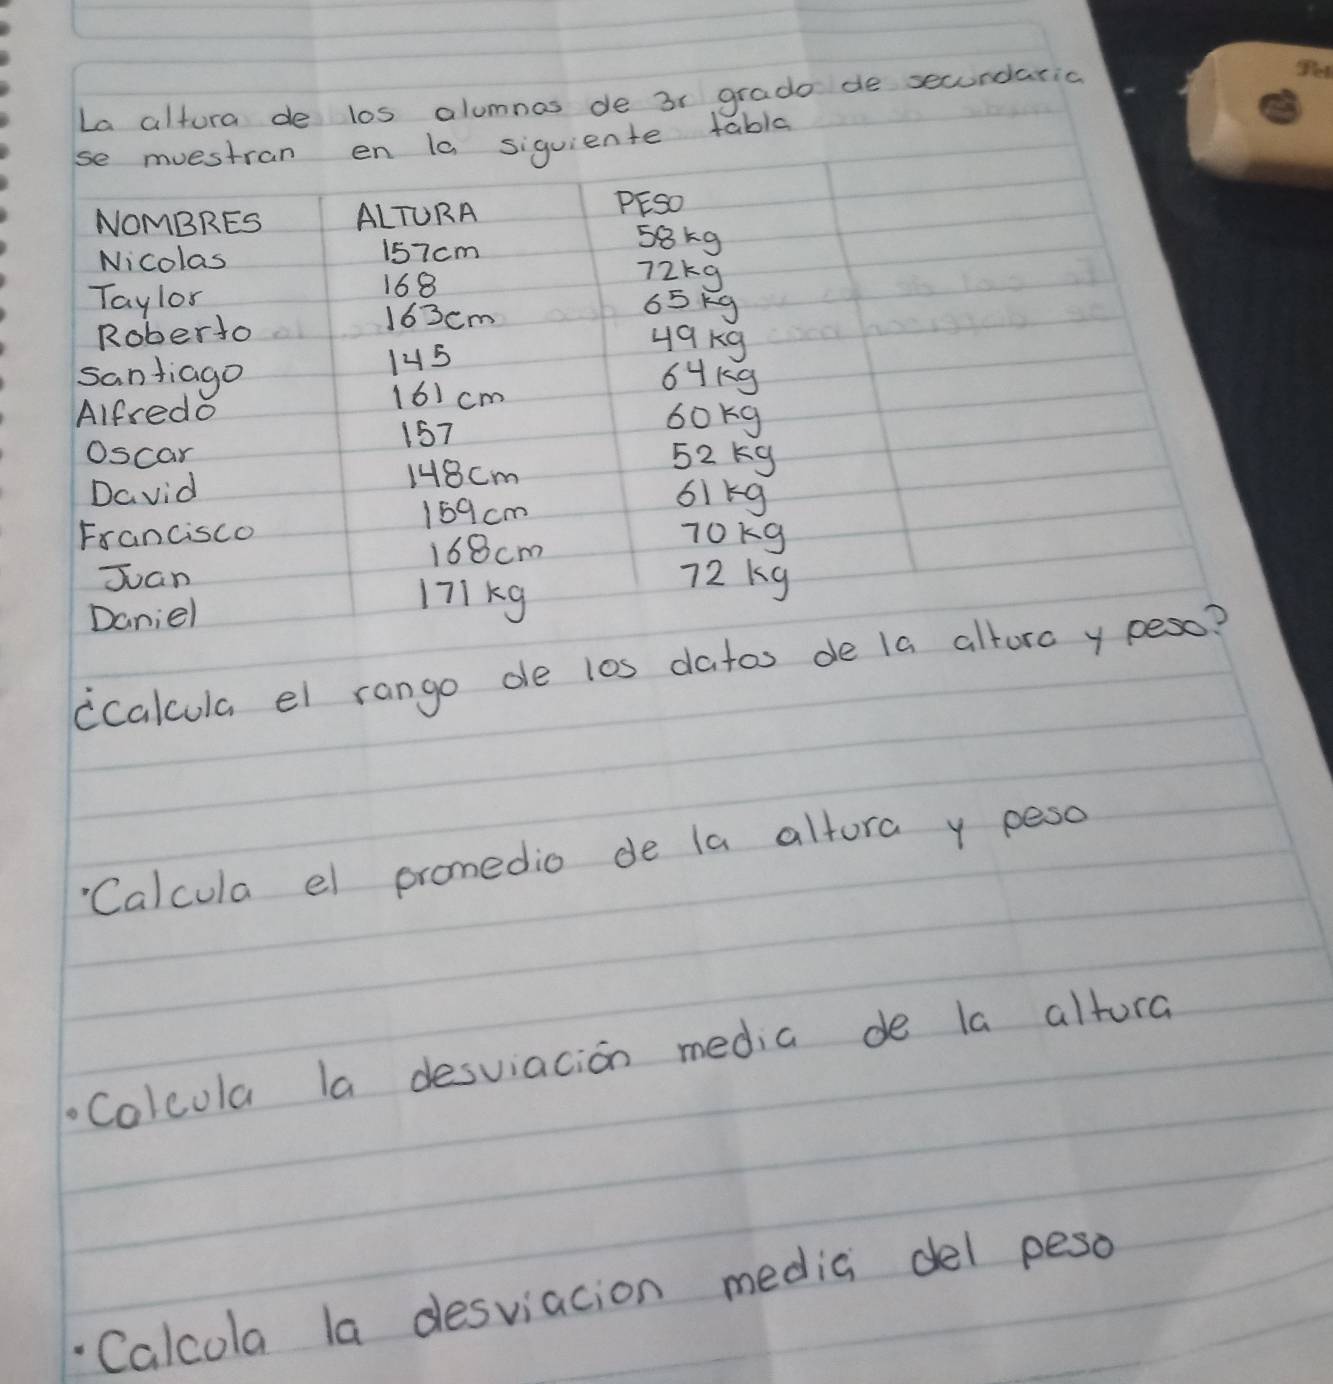 La altura de los alumnos de 3r grado de secundaria
se muestran en la siguiente tabla
NOMBRES ALTURA PESO
Nicolas 157cm 58kg
Taylor 168 72kg
Roberto 163cm 65kg
Santiago 145 49kg
Alfredo 161cm 64kg
Oscar 157 60kg
David 148cm 52kg
Francisco 159cm 61kg
Juan 168cm 70kg
Daniel 171kg 72kg
¿calcula el rango de los datos de la altura y peso?
·Calcula el promedio de la altura y peso
·Calcula la desviación media de la altura
·Calcola la desviacion media del peso